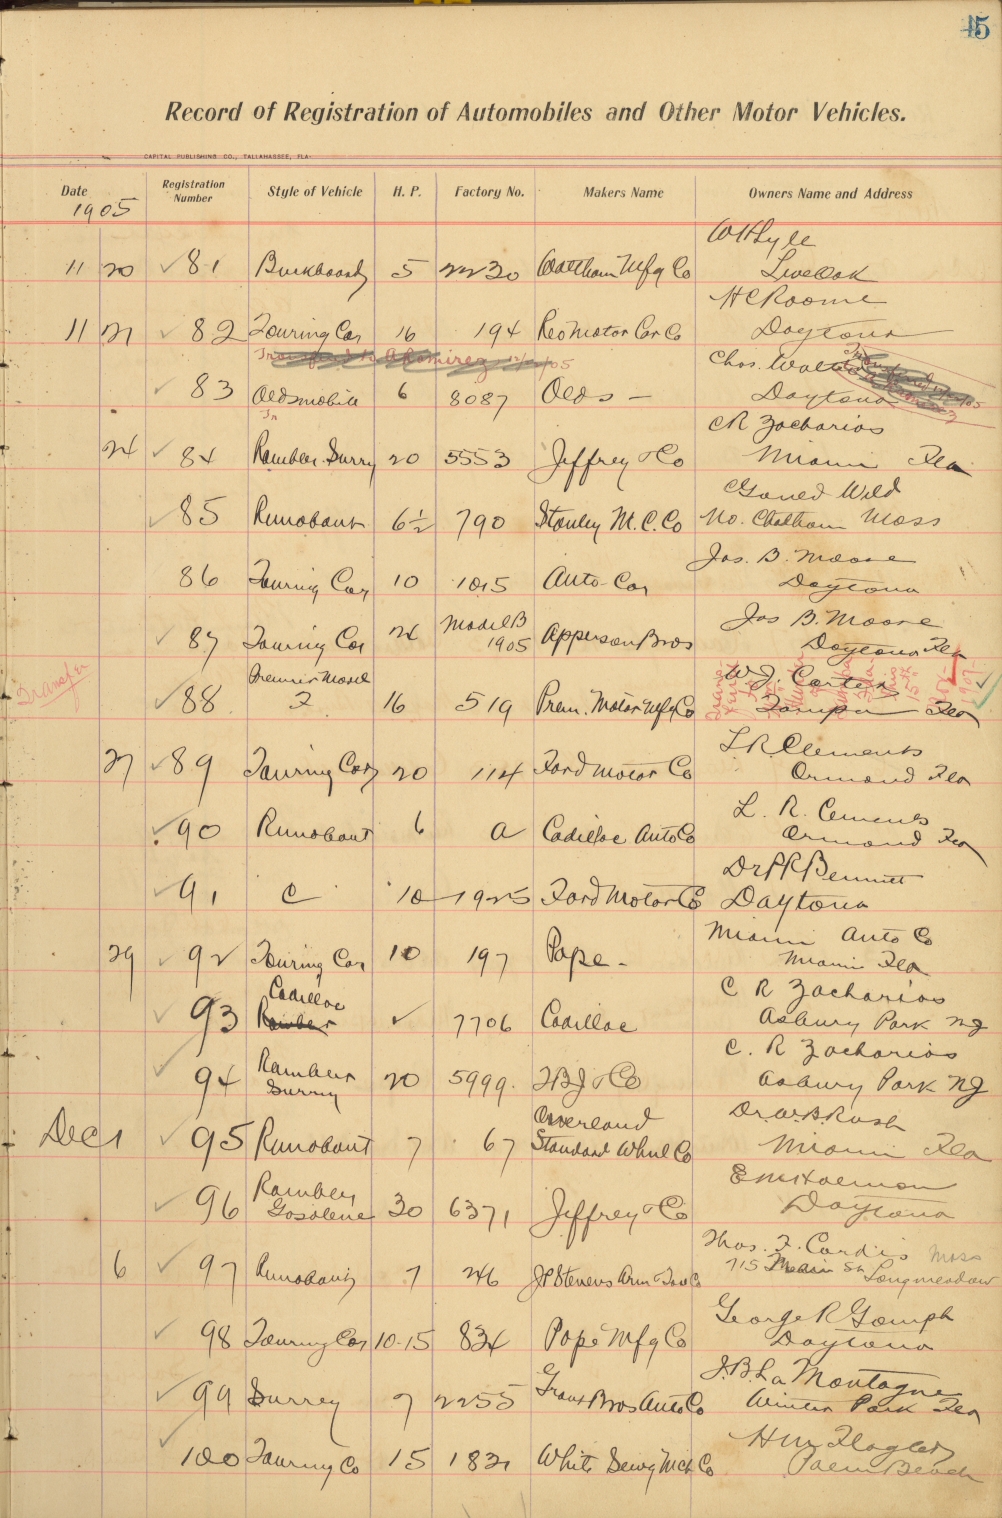 45
Record of Registration of Automobiles and Other Motor Vehicles.
CAPITAL PUBLISHING CO., TALLAHASSEE, FLA.
Date Registration Number Style of Vehicle H. P. Factory No. Makers Name Owners Name and Address
1905
W H Lyle
11 20 81 Buckboard 5 2230 Waltham Mfg Co Live Oak
H C Roome
11 21 82 Touring Car 16 194 Reo Motor Car Co Daytona
Chas.
83 Oldsmobile 6 8087 Olds - Daytona
C R Zacharias
24 84 Rambler Surry 20 5553 Jeffrey & Co Miami Fla
Wild
85 Runabout 6 1/2 790 Stanley M. C. Co No. Chatham Mass
Jas. B. Moore
86 Touring Car 10 1015 Auto Car Daytona
Jas B. Moore
87 Touring Car 24 Model B 1905 Apperson Bros Daytona Fla
Transfer
Premier Model W. J. Carter
88 F 16 519 Prem. Motor Mfg Co Tampa Fla
L R Clements
27 89 Touring Car 20 114 Ford Motor Co Ormond Fla
L. R. Cements
90 Runabout 6 A Cadillac Auto Co Ormond Fla
Dr Bennett
91 C 10 1925 Ford Motor Co Daytona
Miami Auto Co
29 92 Touring Car 10 197 Pope - Miami Fla
Cadillac C R Zacharias
93 Rambler 7706 Cadillac Asbury Park NJ
C. R Zacharias
94 Rambler Surrey 20 5999. T B J & Co Asbury Park NJ
Overland Dr W. B. Rush
Dec 1 95 Runabout 7 67 Standard Wheel Co Miami Fla
96 Rambler Gasolene 30 6371 Jeffrey & Co Daytona
Thos. F. Cordis Mass
6 97 Runabout 7 246 J Stevens Arm & Tool Co 715 St Longmeadow
George R Gamph
98 Touring Car 10-15 834 Pope Mfg Co Daytona
J. B. La Montagne
99 Surrey 7 2255 Grant Bros Auto Co Winter Park Fla
H M Flagler
100 Touring Ca 15 1821 White Sewg Mch Co Palm Beach